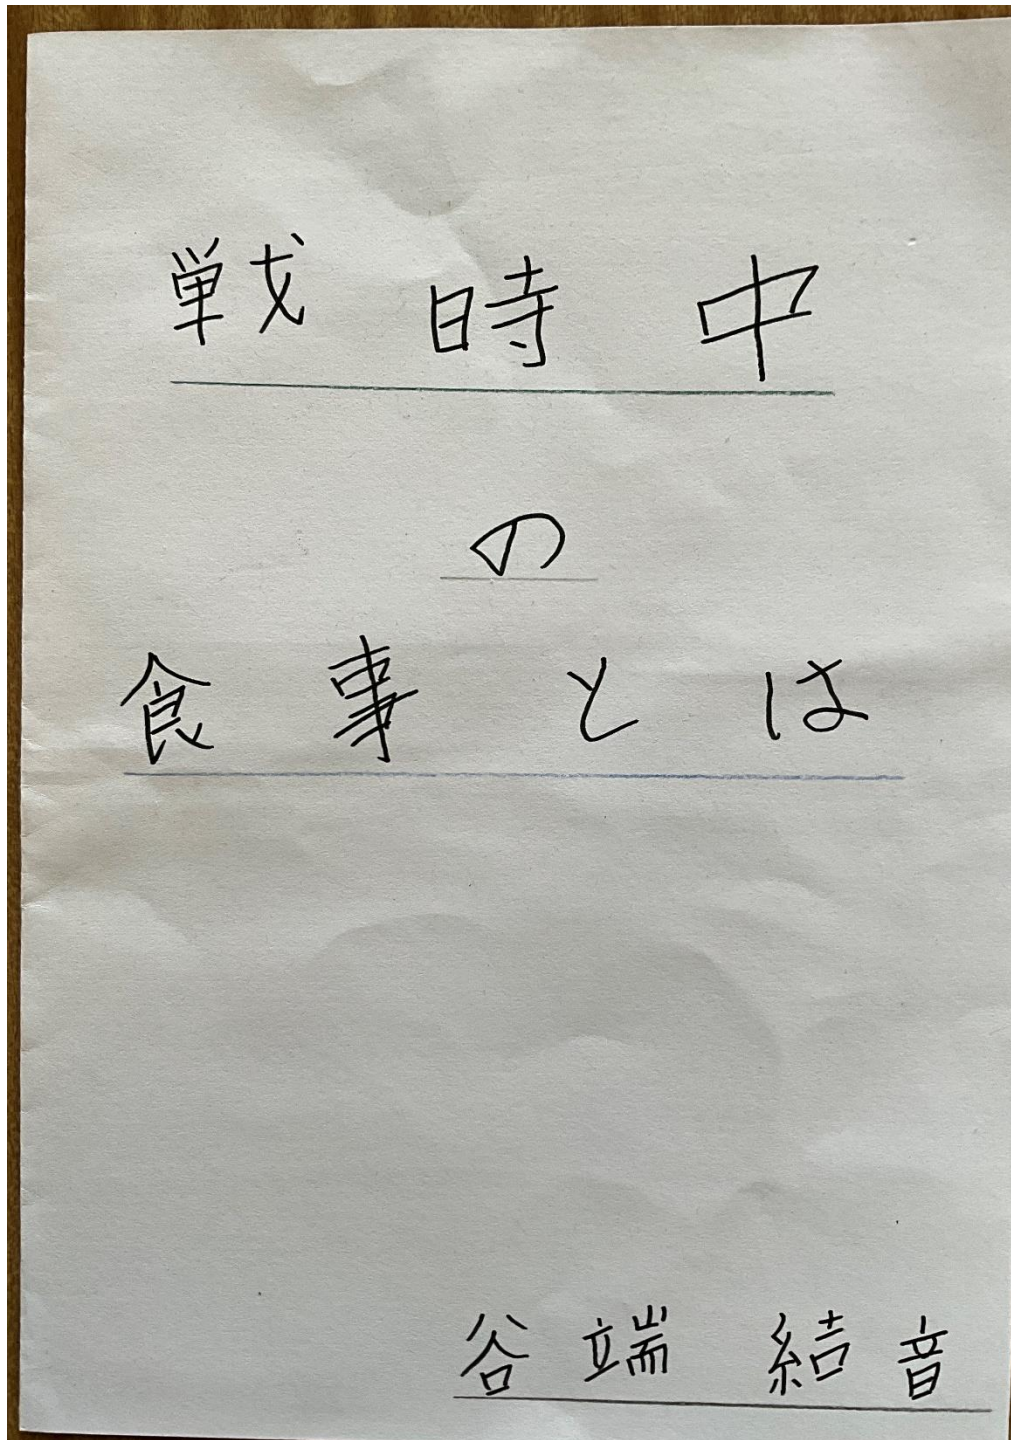 戦時中
の
食事とは
谷端 結音